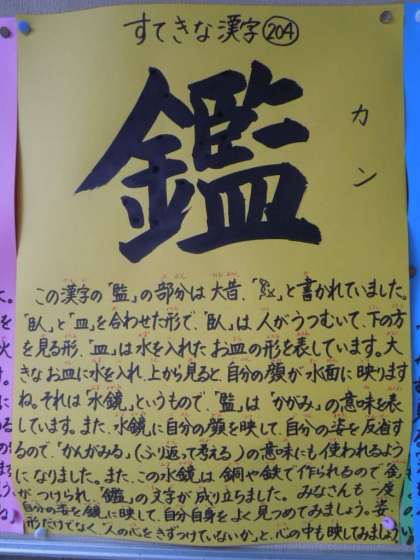 すてきな漢字204
鑑
カン
この漢字の「監」の部分は大昔、「」と書かれていました。
「臥」と「皿」を合わせた形で、「臥」は人がうつむいて、下の方
を見る形、「皿」は水を入れたお皿の形を表しています。大
きなお皿に水を入れ、上から見ると、自分の顔が水面に映ります
ね。それは「水鏡」というもので、「監」は「かがみ」の意味を表
しています。また、水鏡に自分の顔を映して、自分の姿を反省す
るので、「かんがみる」(ふり返って考える)の意味にも使われるよう
になりました。また、この水鏡は銅や鉄で作られるので「金」
がつけられ、「鑑」の文字が成り立ちました。みなさんも一度
自分の姿を鏡に映して、自分自身をよく見つめてみましょう。姿、
形だけでなく、"人の心をきずつけていないか"と、心の中も映してみましょう